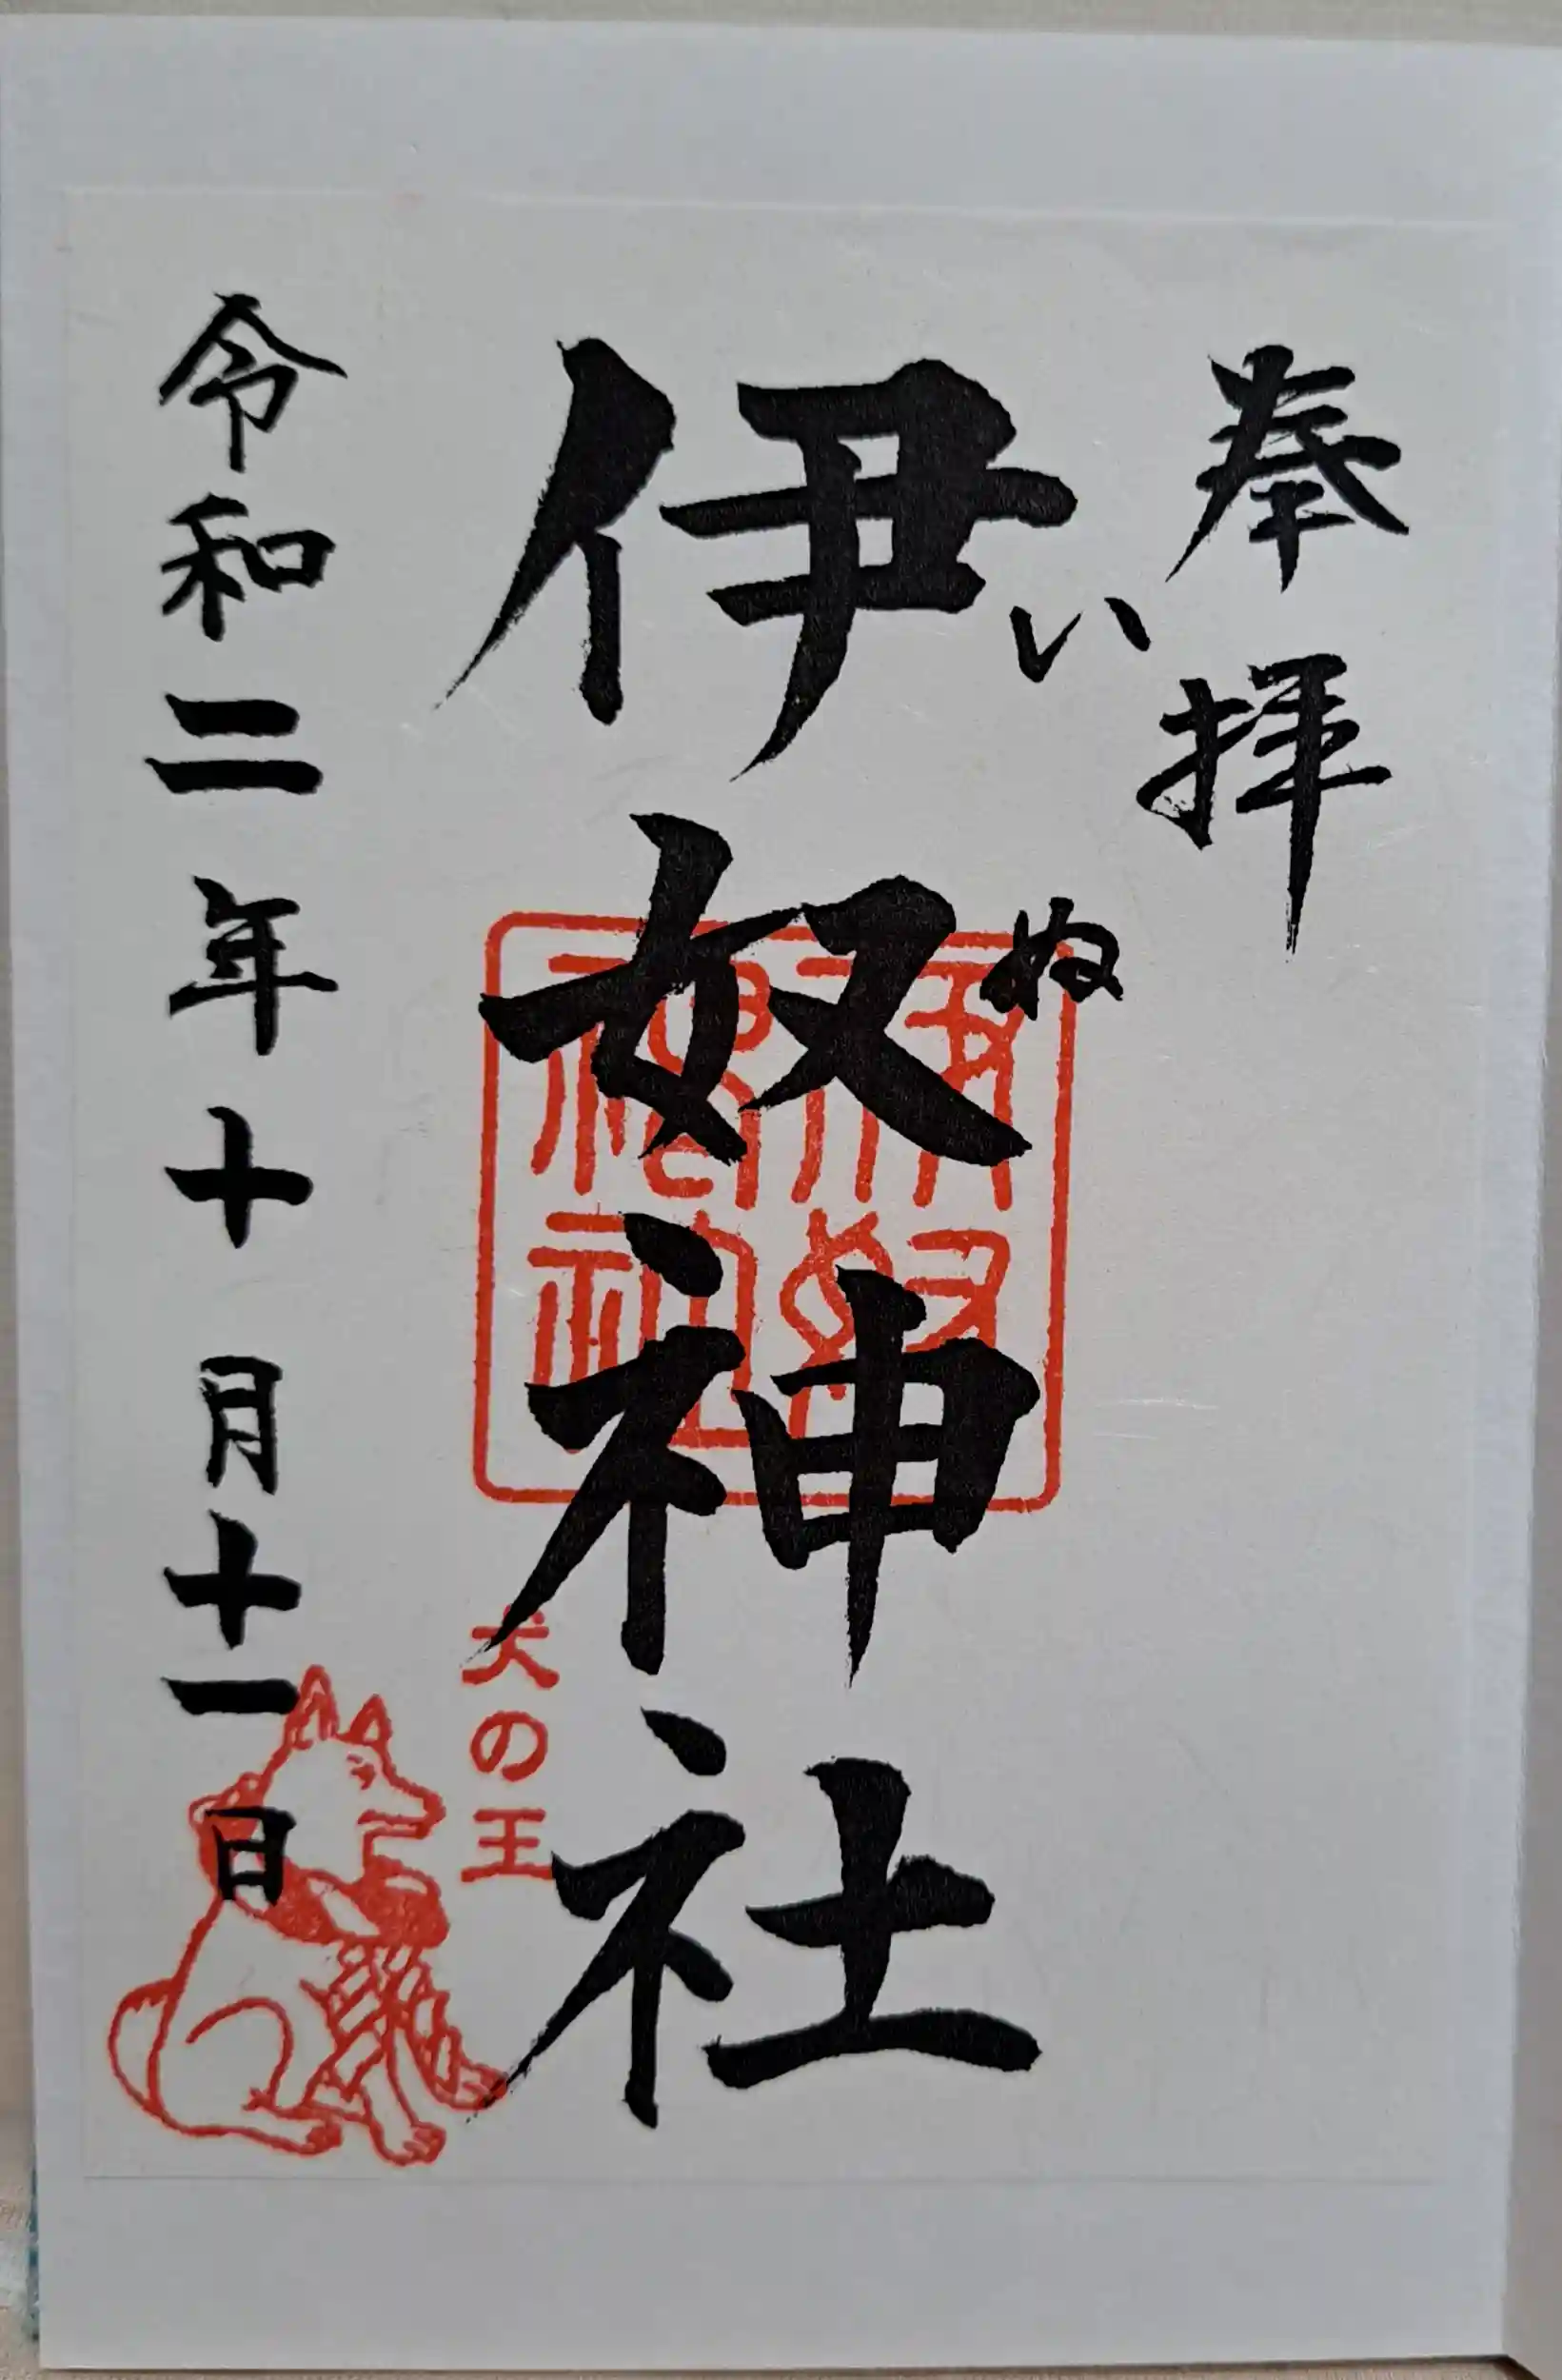 奉拝
いぬ
伊奴神社
犬の王
令和二年十月十一日